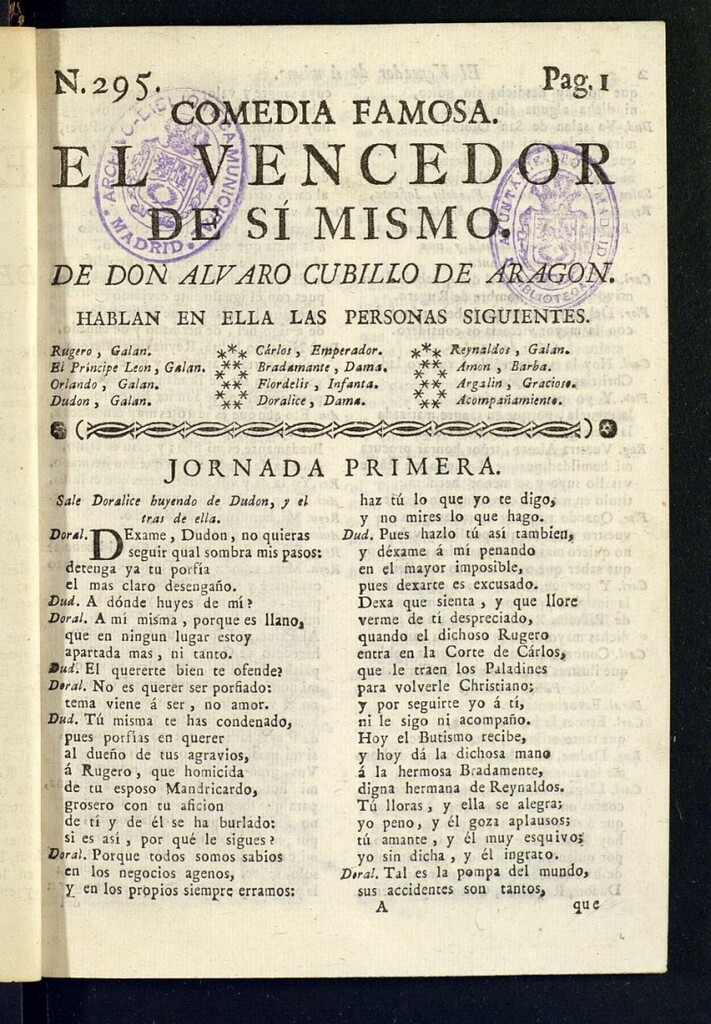 N. 295.
Pag. 1
COMEDIA FAMOSA.
EL VENCEDOR
DE SÍ MISMO.
DE DON ALVARO CUBILLO DE ARAGON.
HABLAN EN ELLA LAS PERSONAS SIGUIENTES.
Rugero, Galan.
El Príncipe Leon, Galan.
Orlando, Galan.
Dudon, Galan.
Cárlos, Emperador.
Bradamante, Dama.
Flordelis, Infanta.
Doralice, Dama.
Reynaldos, Galan.
Amon, Barba.
Argalin, Gracioso.
Acompañamiento.
JORNADA PRIMERA.
Sale Doralice huyendo de Dudon, y el
tras de ella.
Doral. DExame, Dudon, no quieras
seguir qual sombra mis pasos:
detenga ya tu porfía
el mas claro desengaño.
Dud. A dónde huyes de mí?
Doral. A mí misma, porque es llano,
que en ningun lugar estoy
apartada mas, ni tanto.
Dud. El quererte bien te ofende?
Doral. No es querer ser porfiado:
tema viene á ser, no amor.
Dud. Tú misma te has condenado,
pues porfias en querer
al dueño de tus agravios,
á Rugero, que homicida
de tu esposo Mandricardo,
grosero con tu aficion
de tí y de él se ha burlado:
si es así, por qué le sigues?
Doral. Porque todos somos sabios
en los negocios agenos,
y en los propios siempre erramos:
haz tú lo que yo te digo,
y no mires lo que hago.
Dud. Pues hazlo tú así tambien,
y déxame á mí penando
en el mayor imposible,
pues dexarte es excusado.
Dexa que sienta, y que llore
verme de tí despreciado,
quando el dichoso Rugero
entra en la Corte de Cárlos,
que le traen los Paladines
para volverle Christiano;
y por seguirte yo á tí,
ni le sigo ni acompaño.
Hoy el Butismo recibe,
y hoy dá la dichosa mano
á la hermosa Bradamente,
digna hermana de Reynaldos.
Tú lloras, y ella se alegra;
yo peno, y él goza aplausos;
tú amante, y él muy esquivo;
yo sin dicha, y él ingrato.
Doral. Tal es la pompa del mundo,
sus accidentes son tantos,
A
que
MADRID
MADRID
BIBLIOTECA